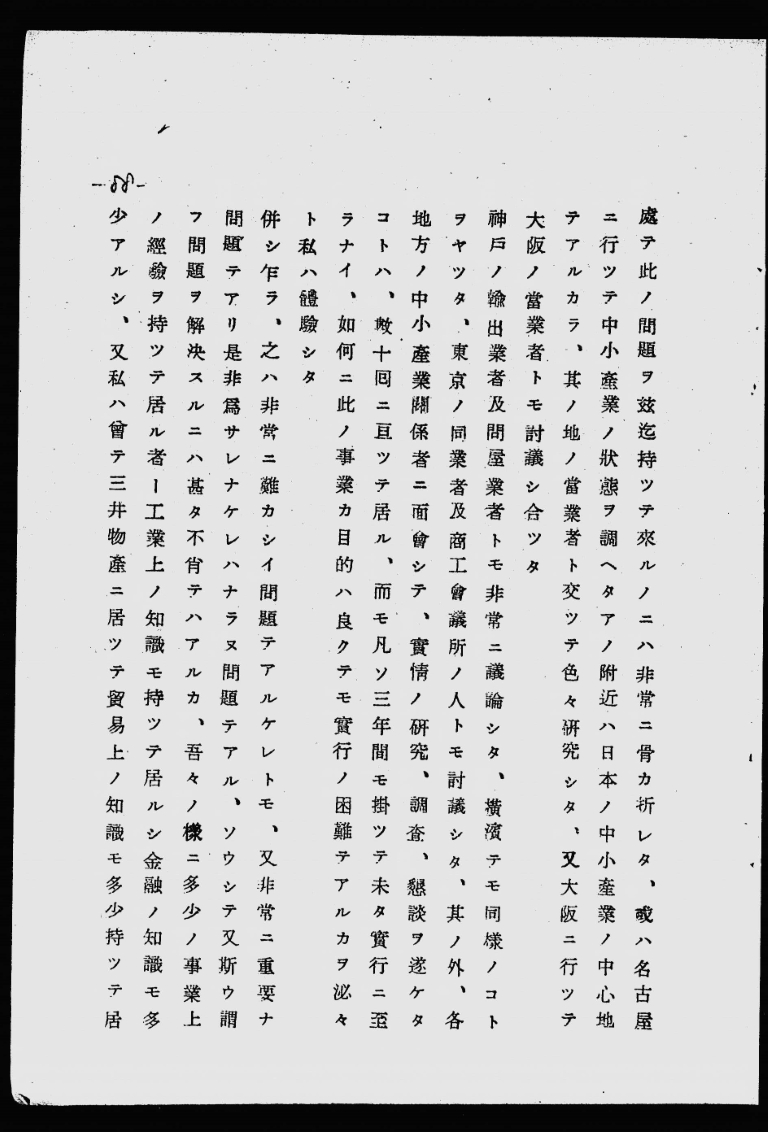 處テ此ノ問題ヲ玆迄持ツテ來ルノニハ非常ニ骨カ折レタ、或ハ名古屋
ニ行ツテ中小產業ノ狀態ヲ調ヘタアノ附近ハ日本ノ中小產業ノ中心地
テアルカラ、其ノ地ノ當業者ト交ツテ色々硏究シタ、又大阪ニ行ツテ
大阪ノ當業者トモ討議シ合ツタ
神戶ノ輸出業者及問屋業者トモ非常ニ議論シタ、橫濱テモ同樣ノコト
ヲヤツタ、東京ノ同業者及商工會議所ノ人トモ討議シタ、其ノ外、各
地方ノ中小產業關係者ニ面會シテ、實情ノ硏究、調査、懇談ヲ遂ケタ
コトハ、數十回ニ亘ツテ居ル、而モ凡ソ三年間モ掛ツテ未タ實行ニ至
ラナイ、如何ニ此ノ事業カ目的ハ良クテモ實行ノ困難テアルカヲ泌々
ト私ハ體驗シタ
併シ乍ラ、之ハ非常ニ難カシイ問題テアルケレトモ、又非常ニ重要ナ
問題テアリ是非爲サレナケレハナラヌ問題テアル、ソウシテ又斯ウ謂
フ問題ヲ解決スルニハ甚タ不肖テハアルカ、吾々ノ樣ニ多少ノ事業上
ノ經驗ヲ持ツテ居ル者ー工業上ノ知識モ持ツテ居ルシ金融ノ知識モ多
少アルシ、又私ハ曾テ三井物產ニ居ツテ貿易上ノ知識モ多少持ツテ居